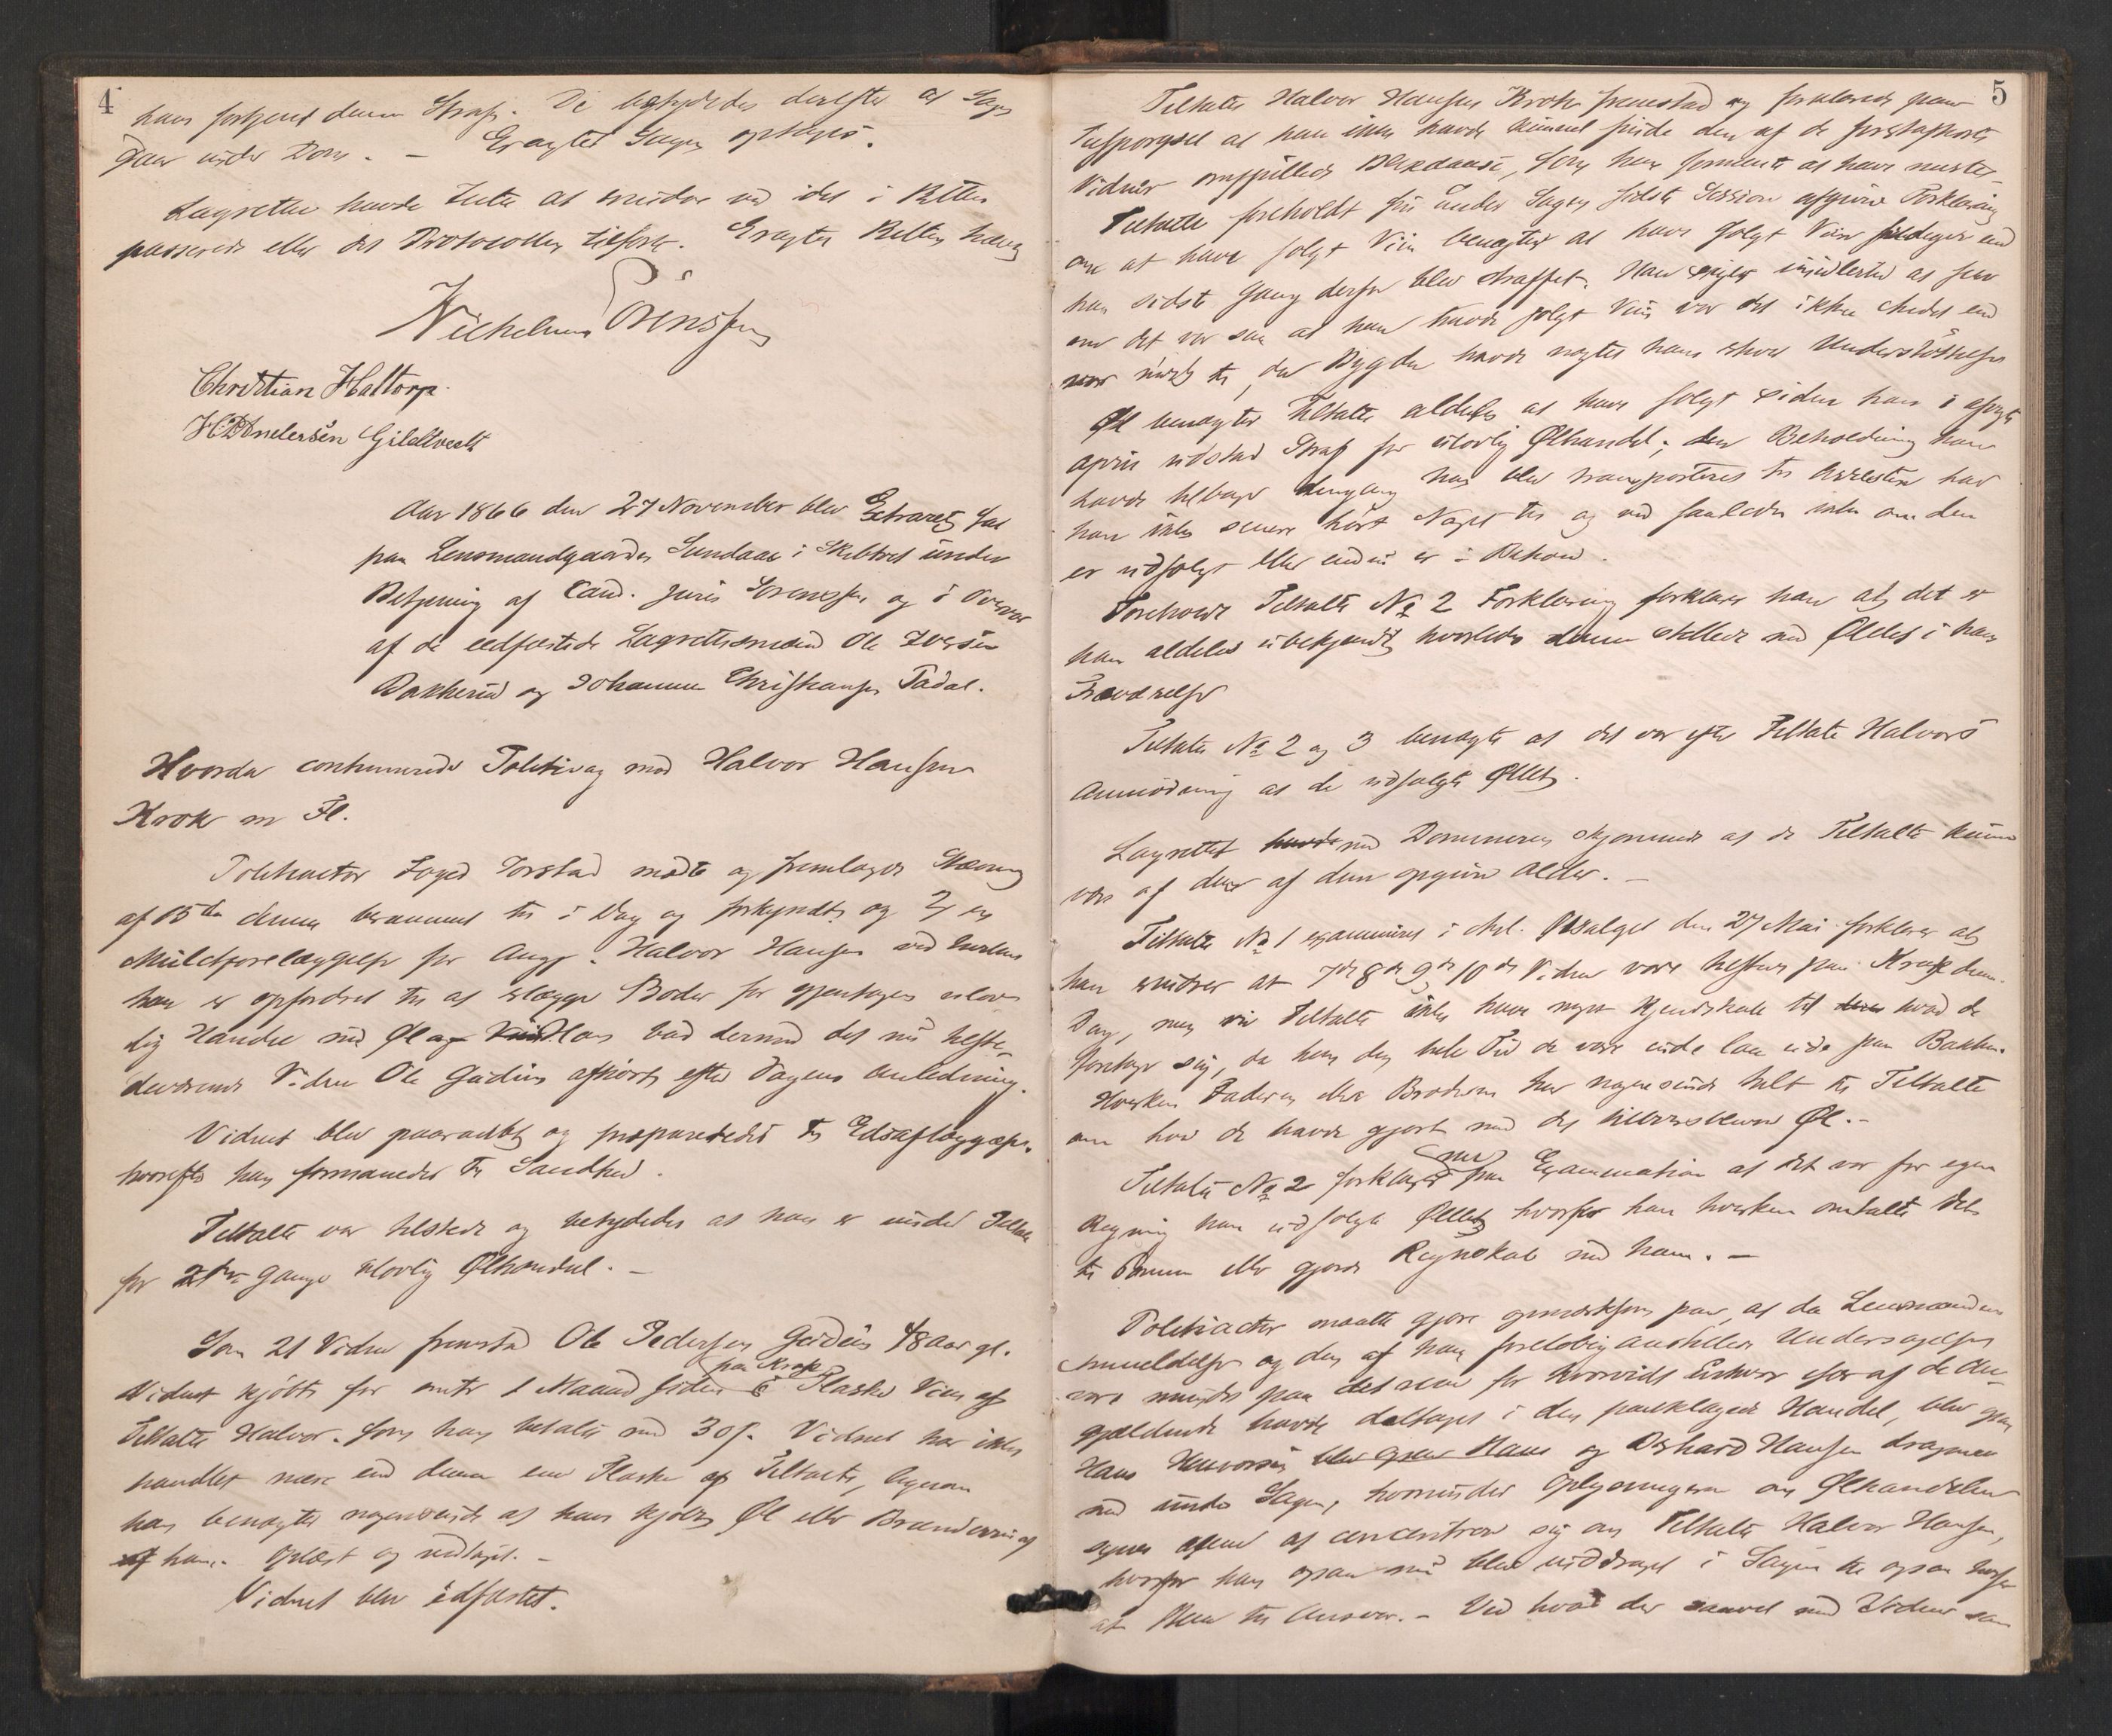 4
have fortjent denne Straf. De begjærede derefter at Sagen
gaar under Dom. — Eragtet Sagen optages.
Lagrettet havde Intet at erindre ved idet i Retten
passerede eller det Protocollen tilførte. Eragtes Retten hævet
Wilhelm Sörenssen
Christian Haltorp.
H Andersen Gildtvedt
Aar 1866 den 27 November blev Extraret sat
paa Lensmandgaarden Sundaas i Skibtvet under
Betjening af Cand. juris Sörenssen og i Overvær
af de eedfæstede Lagrettesmænd Ole Iversen
Bakkerud og Johannes Christiansen Tadal.
Hvorda continuerede Politisag mod Halvor Hansen
Krok m Fl.
Politiactor Foged Torstad mødte og fremlagde Stævning
af 15de denne berammet til i Dag og forkyndt og
Mulctforelæggelse for Ang. Halvor Hansen ved hvilken
han er opfordret til at erlægge Bøder for gjentagen ulov-
lig Handel med Øl og Viin han bad dermed det nu tilste-
deværende Vidne Ole Gudim afhørt efter Dagens Anledning.
Vidnet blev paaraabt og præparerededs til Edsaflæggelse.
hvorefter han formanedes til Sandhed.
Tiltalte var tilstede og betydedes at han er under Tiltale
for gange ulovlig Ølhandel. —
Som 21 Vidne fremstod Ole Pedersen Gudim 48 Aar gl.
paa Krok
Vidnet kjøbte for omtr 1 Maaned siden Flaske Viin af
Tiltalte Halvor. som han betalte med 30 s. Vidnet har ikke
handlet mere end denne ene Flaske af Tiltalte, ligesom
han benægter nogensinde at have kjøbt Øl eller Brændeviin af
af ham. Oplæst og vedtaget. —
Vidnet blev edfæstet.
5
Tiltalte Halvor Hansen Krok fremstod og forklarede paa
Tilspørgsel at han ikke havde kunnet finde den af de førstafhørte
Vidner omspillede Blikdaase, som han formente at have mistet
Tiltalte foreholdt sin under Sagens sidste Session afgivne Forklaring
om at have solgt Viin benægter at have solgt Viin sildigere end
han sidste Gang derfor blev straffet. Han siger imidlertid at selv
om det var saa at han havde solgt Viin var det ikke Andet end
han nødt til, da Bygden havde nægtet ham enhver Understøttelse
Øl benægter Tiltalte aldeles at have solgt siden han i afvigte
April udstod Straf for ulovlig Ølhandel; den Beholdning han
havde tilbage dengang han blev transporteret til Arresten har
han ikke senere hørt Noget til og ved saaledes ikke om den
er udsolgt eller endnu er i Behold.
Foreholdt Tiltalte No 2 Forklaring forklarer han at det er
ham aldeles ubekjendt hvorledes denne stillede med Øllet i hans
Fraværelse
Tiltalte No 2 og 3 benægte at det var efter Tiltalte Halvors
Anmodning at de udsolgte Øllet.
Lagrettet havde med Dommeren skjønnede at de Tiltalte kunne
være af den af dem opgivne Alder. —
Tiltalte No 1 examineret i Anl. Ølsalget den 27 Mai forklarer at
han erindrer at 7de 8de 9de 10de Vidner vare tilstede paa Krok denne
Dag, men vil Tiltalte ikke have noget Kjendskab til hvad de
foretoge sig, da han den hele Tid de vare inde laa ude paa Bakken.
Hverken Faderen eller Broderen har nogensinde talt til Tiltalte
om hvad de havde gjort med det tilbageblevne Øl. —
Tiltalte No 2 forklarer nu paa Examination at det var for egen
Regning han udsolgte Øllet hvorfor han hverken omtalte det
til Sønnen eller gjorde Regnskab med ham. —
Politiactor maatte gjøre opmærksom paa, at da Lensmandens
Anmeldelse og den af ham foreløbig anstillede Undersøgelser
vare mindre paa det rene for hvorvidt Enhver især af de An-
gjældende havde deltaget i den paaklagede Handel, blev
Hans Halvorsen blev ogsaa Hans og Hansen dragne
ind under Sagen, hvorunder Oplysningerne om Ølhandelen
synes alene at concentrere sig om Tiltalte Halvor Hansen,
hvorfor han ogsaa nu blev inddraget i Sagen
at til Ansvar. — Ved hvad der saavel ved Vidner som